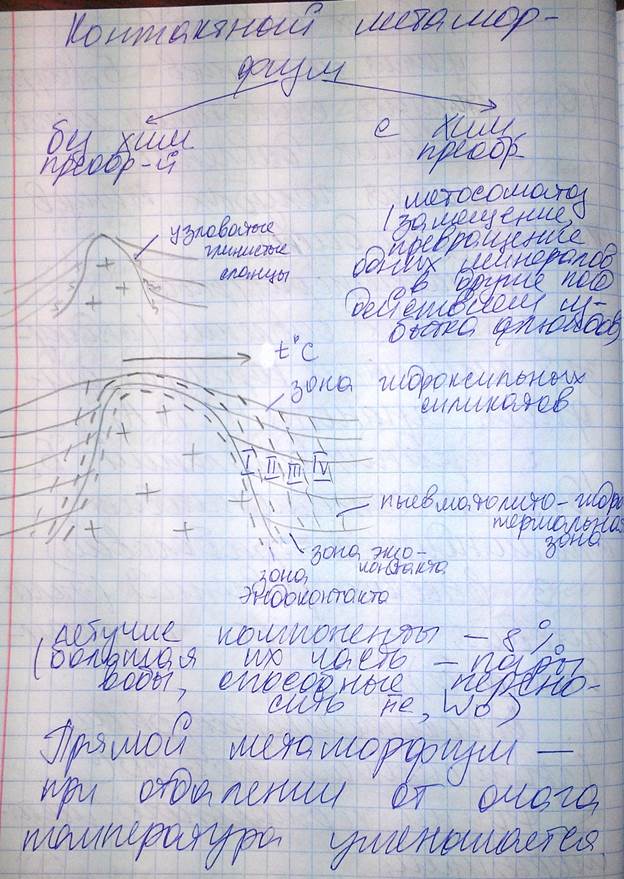 Контактный метамор-
физм
без хим
преобр-й
с хим
преобр.
узловатые
глинистые
сланцы
(метосоматоз
замещение,
превращение
одних минералов
в другие под
действием из-
бытка флюидов)
t°C
зона гидроксильных
силикатов
I II III IV
пневматолито-гидро
термальная
зона
зона экзо-
контакта
зона
эндоконтакта
летучие компоненты – 8%
(большая их часть – пары
воды, способные перено-
сить не, Wo)
Прямой метаморфизм –
при отдалении от очага
температура уменьшается